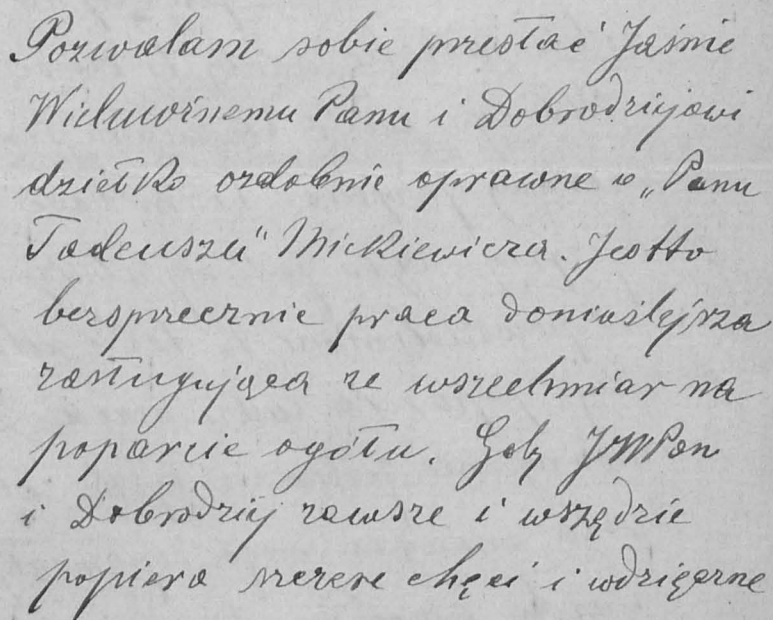 Pozwalam sobie przesłać Jaśnie
Wielmożnemu Panu i Dobrodziejowi
dziełko ozdobnie oprawne o „Panu
Tadeuszu" Mickiewicza. Jestto
bezsprzecznie praca doniosłejsza
zasługująca ze wszechmiar na
poparcie ogółu. Gdy JWPan
i Dobrodziej zawsze i wszędzie
popiera szczere chęci i wdzięczne